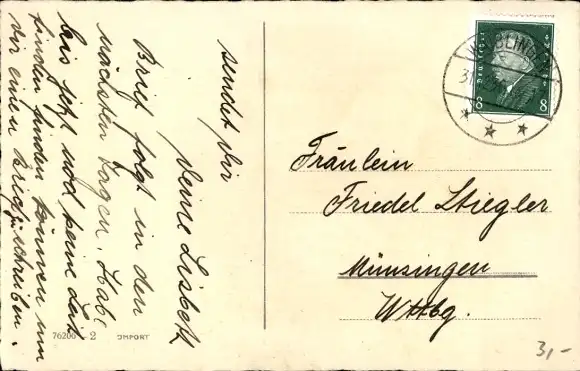 sendet dir
Deine Lisbeth
Brief folgt in den
nächsten Tagen. Habe
bis jetzt noch keine Zeit
finden können um
dir einen Brief zu schreiben.
76206 - 2 IMPORT
WAIBLINGEN
8 8
Fräulein
Friedel Stiegler
Münsingen
Wttbg.
3,-